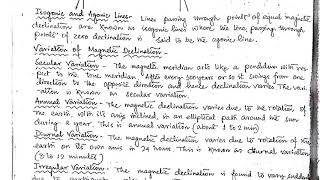 Isogonic and Agonic Lines- Lines passing through points of equal magnetic
declination are known as isogonic lines where the line passing through
points of zero declination is said to be the agonic line.
Variation of Magnetic Declination-
Secular Variation - The magnetic meridian acts like a pendulum with res
pect to the true meridian. After every 300 years or so it swings from one
direction to the opposite direction and hence declination varies. The vari
-ation is known as secular variation.
Annual Variation - The magnetic declination varies due to the rotation of
the earth, with its axis inclined, in an elliptical path around the sun
during a year. This is annual variation (about 1 to 2 min)
Diurnal Variation - The magnetic declination varies due to rotation of the
earth on its own axis in 24 hours. This is known as diurnal variation
(3 to 12 minutes)
Irregular Variation - The magnetic declination is found to vary suddenly